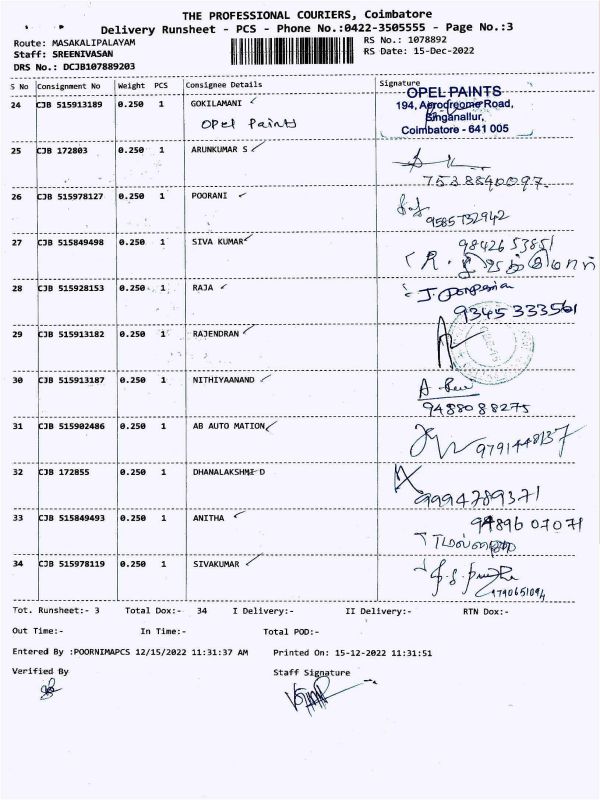 THE PROFESSIONAL COURIERS, Coimbatore
Delivery Runsheet - PCS - Phone No.:0422-3505555 - Page No.:3
Route: MASAKALIPALAYAM RS No.: 1078892
Staff: SREENIVASAN RS Date: 15-Dec-2022
DRS No.: DCJB107889203
S No Consignment No Weight PCS Consignee Details Signature
24 CJB 515913189 0.250 1 GOKILAMANI
Opel Paints
OPEL PAINTS
194, Aerodroome Road,
Singanallur,
Coimbatore - 641 005
25 CJB 172803 0.250 1 ARUNKUMAR S
7538840097
26 CJB 515978127 0.250 1 POORANI
9585732942
27 CJB 515849498 0.250 1 SIVA KUMAR
9842653851
28 CJB 515928153 0.250 1 RAJA
9345333561
29 CJB 515913182 0.250 1 RAJENDRAN
30 CJB 515913187 0.250 1 NITHIYAANAND
9488088275
31 CJB 515902486 0.250 1 AB AUTO MATION
9791448137
32 CJB 172855 0.250 1 DHANALAKSHMI D
9994789371
33 CJB 515849493 0.250 1 ANITHA
9489607071
34 CJB 515978119 0.250 1 SIVAKUMAR
9790651094
Tot. Runsheet:- 3 Total Dox:- 34 I Delivery:- II Delivery:- RTN Dox:-
Out Time:- In Time:- Total POD:-
Entered By :POORNIMAPCS 12/15/2022 11:31:37 AM Printed On: 15-12-2022 11:31:51
Verified By Staff Signature